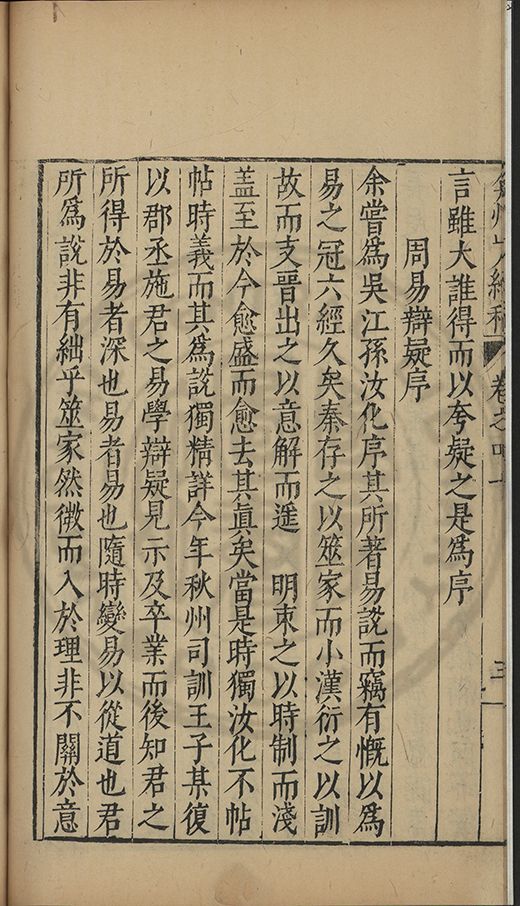 弇州山人續稿 卷之四十 三
言雖大誰得而以夸疑之是爲序
周易辯疑序
余嘗爲吳江孫汝化序其所著易說而竊有慨以爲
易之冠六經久矣秦存之以筮家而小漢衍之以訓
故而支晉出之以意解而遁 明束之以時制而淺
盖至於今愈盛而愈去其眞矣當是時獨汝化不帖
帖時義而其爲說獨精詳今年秋州司訓王子某復
以郡丞施君之易學辯疑見示及卒業而後知君之
所得於易者深也易者易也隨時變易以從道也君
所爲說非有絀乎筮家然徴而入於理非不關於意